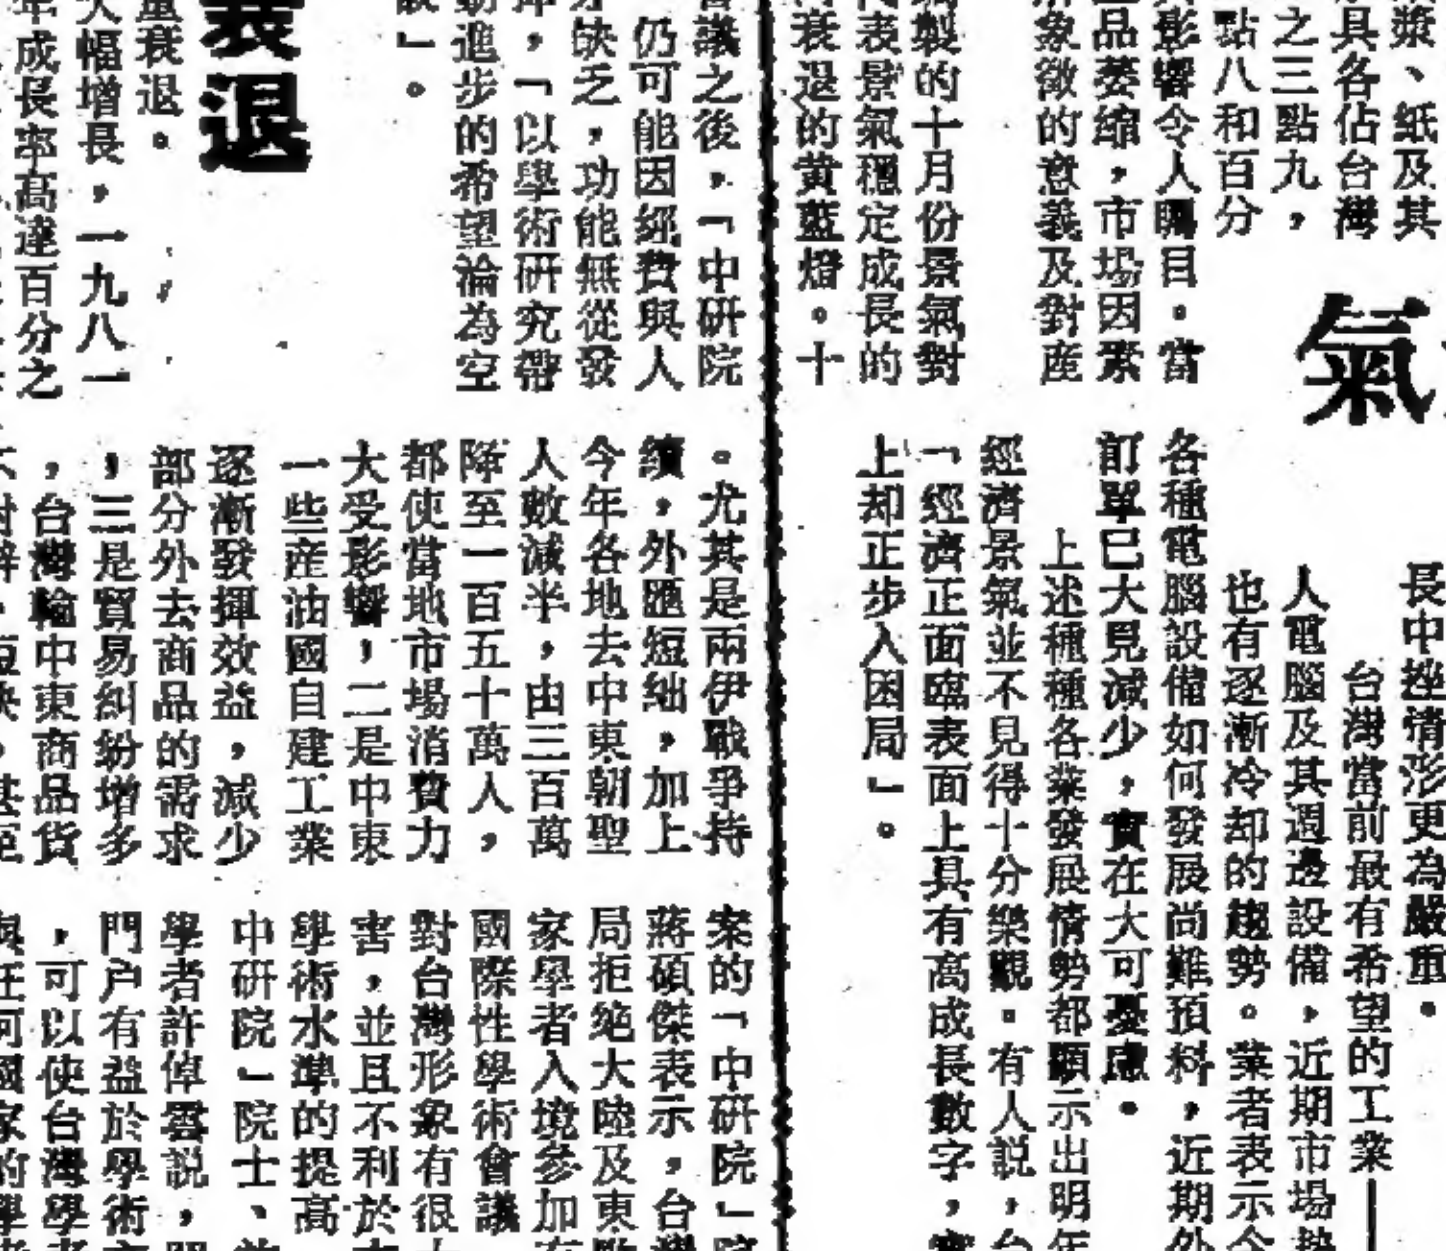 漿、紙及其
具各佔台灣
之三點九，
點八和百分
影響令人矚目。當
品萎縮，市場因素
象徵的意義及對産
製的十月份景氣對
表景氣穩定成長的
衰退的黄藍燈。十
氣
長中挫情形更為嚴重。
台灣當前最有希望的工業—
人電腦及其週邊設備，近期市場
也有逐漸冷却的趨勢。業者表示今
各種電腦設備如何發展尚難預料，近期外
訂單已大見減少，實在大可憂慮。
上述種種各業發展情勢都顯示出明年
經濟景氣並不見得十分樂觀。有人説，台
「經濟正面臨表面上具有高成長數字，實
上却正步入困局」。
議之後，「中研院
仍可能因經費與人
缺乏，功能無從發
，「以學術研究帶
進步的希望淪為空
」。
衰退
衰退。
幅增長，一九八一
成長率高達百分之
。尤其是兩伊戰爭持
續，外匯短絀，加上
今年各地去中東朝聖
人數減半，由三百萬
降至一百五十萬人，
都使當地市場消費力
大受影響，二是中東
一些産油國自建工業
逐漸發揮效益，減少
部分外去商品的需求
，三是貿易糾紛增多
，台灣輸中東商品貨
案的「中研院」院
蔣碩傑表示，台灣
局拒絶大陸及東歐
家學者入境參加
國際性學術會議
對台灣形象有很
害，並且不利於
學術水準的提高
中研院」院士、
學者許倬雲説，
門户有益於學術
，可以使台灣學
與任何國家的學